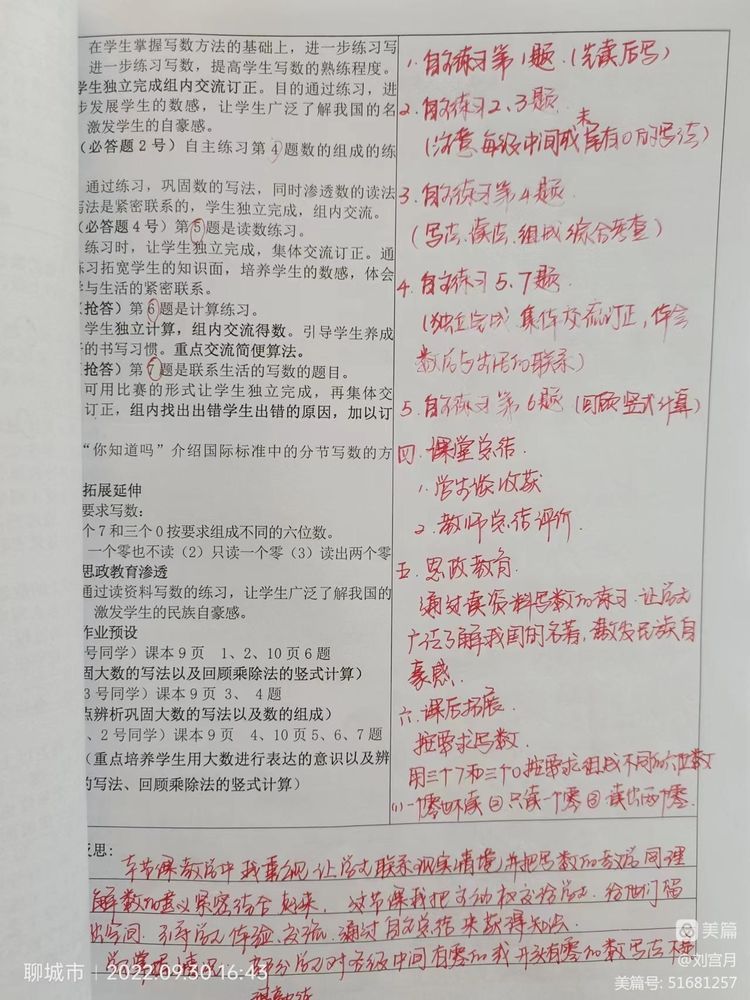 在学生掌握写数方法的基础上，进一步练习写
进一步练习写数，提高学生写数的熟练程度。
学生独立完成组内交流订正。目的通过练习，进
步发展学生的数感，让学生广泛了解我国的名
激发学生的自豪感。
（必答题2号）自主练习第4题数的组成的练
通过练习，巩固数的写法，同时渗透数的读法
写法是紧密联系的，学生独立完成，组内交流。
（必答题4号）第5题是读数练习。
练习时，让学生独立完成，集体交流订正。通
练习拓宽学生的知识面，培养学生的数感，体会
与生活的紧密联系。
（抢答）第6题是计算练习。
学生独立计算，组内交流得数。引导学生养成
的书写习惯。重点交流简便算法。
抢答）第7题是联系生活的写数的题目。
可用比赛的形式让学生独立完成，再集体交
订正，组内找出出错学生出错的原因，加以订
“你知道吗”介绍国际标准中的分节写数的方
拓展延伸
要求写数：
个7和三个0按要求组成不同的六位数。
一个零也不读（2）只读一个零（3）读出两个零
思政教育渗透
通过读资料写数的练习，让学生广泛了解我国的
激发学生的民族自豪感。
作业预设
号同学）课本9页 1、2、10页6题
固大数的写法以及回顾乘除法的竖式计算）
3号同学）课本9页 3、4题
点辨析巩固大数的写法以及数的组成）
、2号同学）课本9页 4、10页5、6、7题
（重点培养学生用大数进行表达的意识以及辨
的写法、回顾乘除法的竖式计算）
1. 自主练习第1题（先读后写）
2. 自主练习2、3题
（注意每级中间或末尾有0的写法）
3. 自主练习第4题
（写法、读法、组成综合考查）
4. 自主练习5、7题
（独立完成 集体交流订正，体会
数学与生活的联系）
5. 自主练习第6题（回顾竖式计算）
四、课堂总结
1. 学生谈收获
2. 教师总结评价
五、思政教育
通过读资料写数的练习，让学生
广泛了解我国的名著，激发民族自
豪感。
六、课后拓展
按要求写数
用三个7和三个0按要求组成不同的六位数
(1)一个零也不读 ②只读一个零 ③读出两个零
反思：
本节课教学中我重视让学生联系现实情境，并把写数的教学同理
解数的意义紧密结合起来，这节课我把主动权交给学生，给他们留
出空间，引导学生体验、交流，通过自主总结来获得知识
部分学生对各级中间有零的或开头有零的数写法不
聊城市 2022.09.30 16:43
美篇
@刘宫月
美篇号：51681257